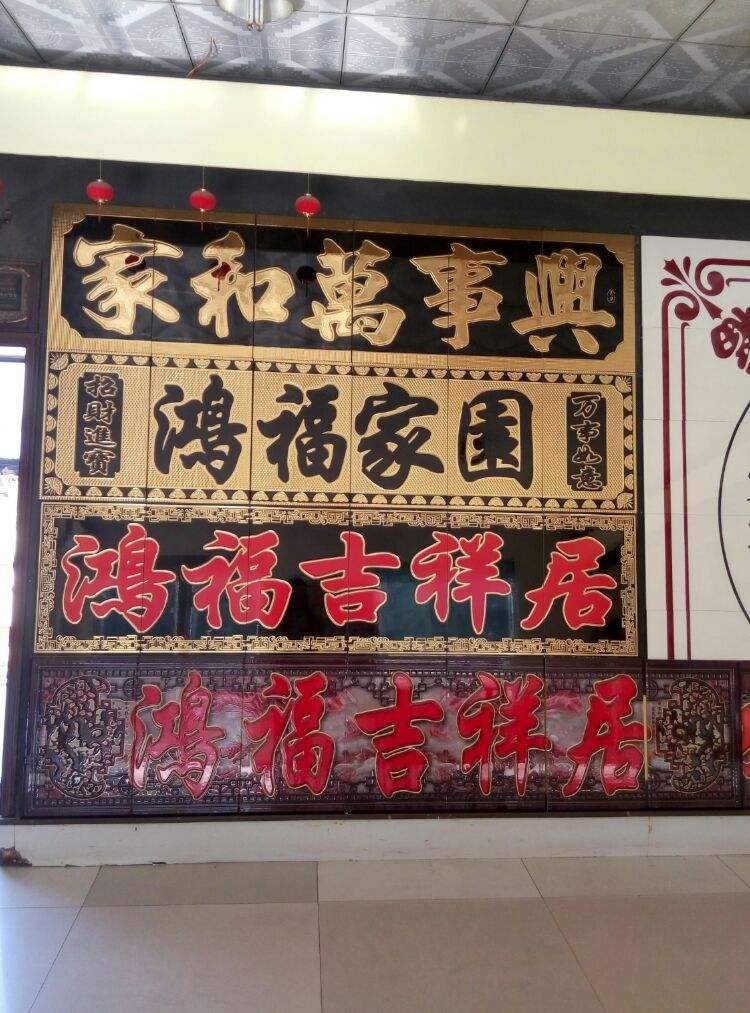 家和萬事興
招財進寶
鴻福家園
万事如意
鴻福吉祥居
鴻福吉祥居